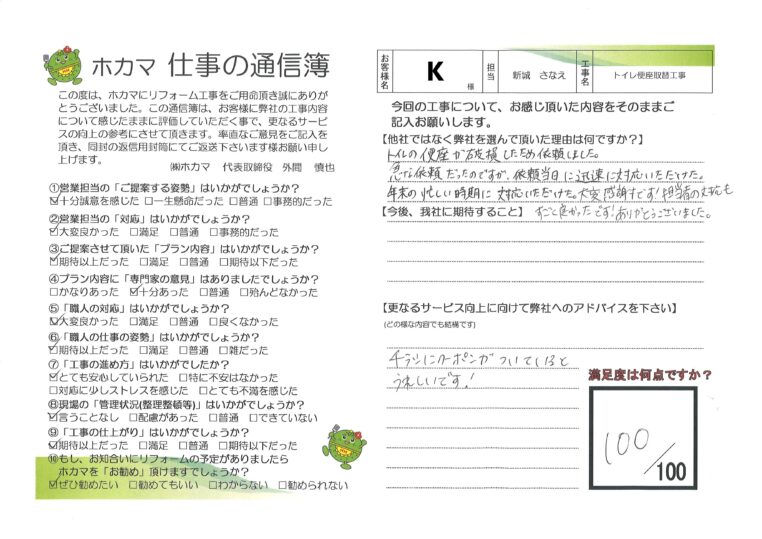 ホカマ 仕事の通信簿
この度は、ホカマにリフォーム工事をご用命頂き誠にありが
とうございました。この通信簿は、お客様に弊社の工事内容
について感じたままに評価していただく事で、更なるサービ
スの向上の参考にさせて頂きます。率直なご意見をご記入を
頂き、同封の返信用封筒にてご返送下さいます様お願い申し
上げます。
㈱ホカマ 代表取締役 外間 慎也
①営業担当の「ご提案する姿勢」はいかがでしょうか?
☑十分誠意を感じた □一生懸命だった □普通 □事務的だった
②営業担当の「対応」はいかがでしょうか?
☑大変良かった □満足 □普通 □事務的だった
③ご提案させて頂いた「プラン内容」はいかがでしょうか?
☑期待以上だった □満足 □普通 □期待以下だった
④プラン内容に「専門家の意見」はありましたでしょうか?
□かなりあった ☑十分あった □普通 □殆んどなかった
⑤「職人の対応」はいかがでしょうか?
☑大変良かった □満足 □普通 □良くなかった
⑥「職人の仕事の姿勢」はいかがでしょうか?
☑期待以上だった □満足 □普通 □雑だった
⑦「工事の進め方」はいかがでしたか?
☑とても安心していられた □特に不安はなかった
□対応に少しストレスを感じた □とても不満を感じた
⑧現場の「管理状況(整理整頓等)」はいかがでしょうか?
☑言うことなし □配慮があった □普通 □できていない
⑨「工事の仕上がり」はいかがでしょうか?
☑期待以上だった □満足 □普通 □期待以下だった
⑩もし、お知合いにリフォームの予定がありましたら
ホカマを「お勧め」頂けますでしょうか?
☑ぜひ勧めたい □勧めてもいい □わからない □勧められない
お客様名 K 様 担当 新城 さなえ 工事名 トイレ便座取替工事
今回の工事について、お感じ頂いた内容をそのままご
記入お願いします。
【他社ではなく弊社を選んで頂いた理由は何ですか?】
トイレの便座が破損したため依頼しました。
急な依頼だったのですが、依頼当日に迅速に対応いただけた。
年末の忙しい時期に対応いただけた。大変感謝です!担当者の対応も
【今後、我社に期待すること】 すごく良かったです!ありがとうございました。
【更なるサービス向上に向けて弊社へのアドバイスを下さい】
(どの様な内容でも結構です)
チラシにクーポンが ついていると
うれしいです!
満足度は何点ですか?
100/100